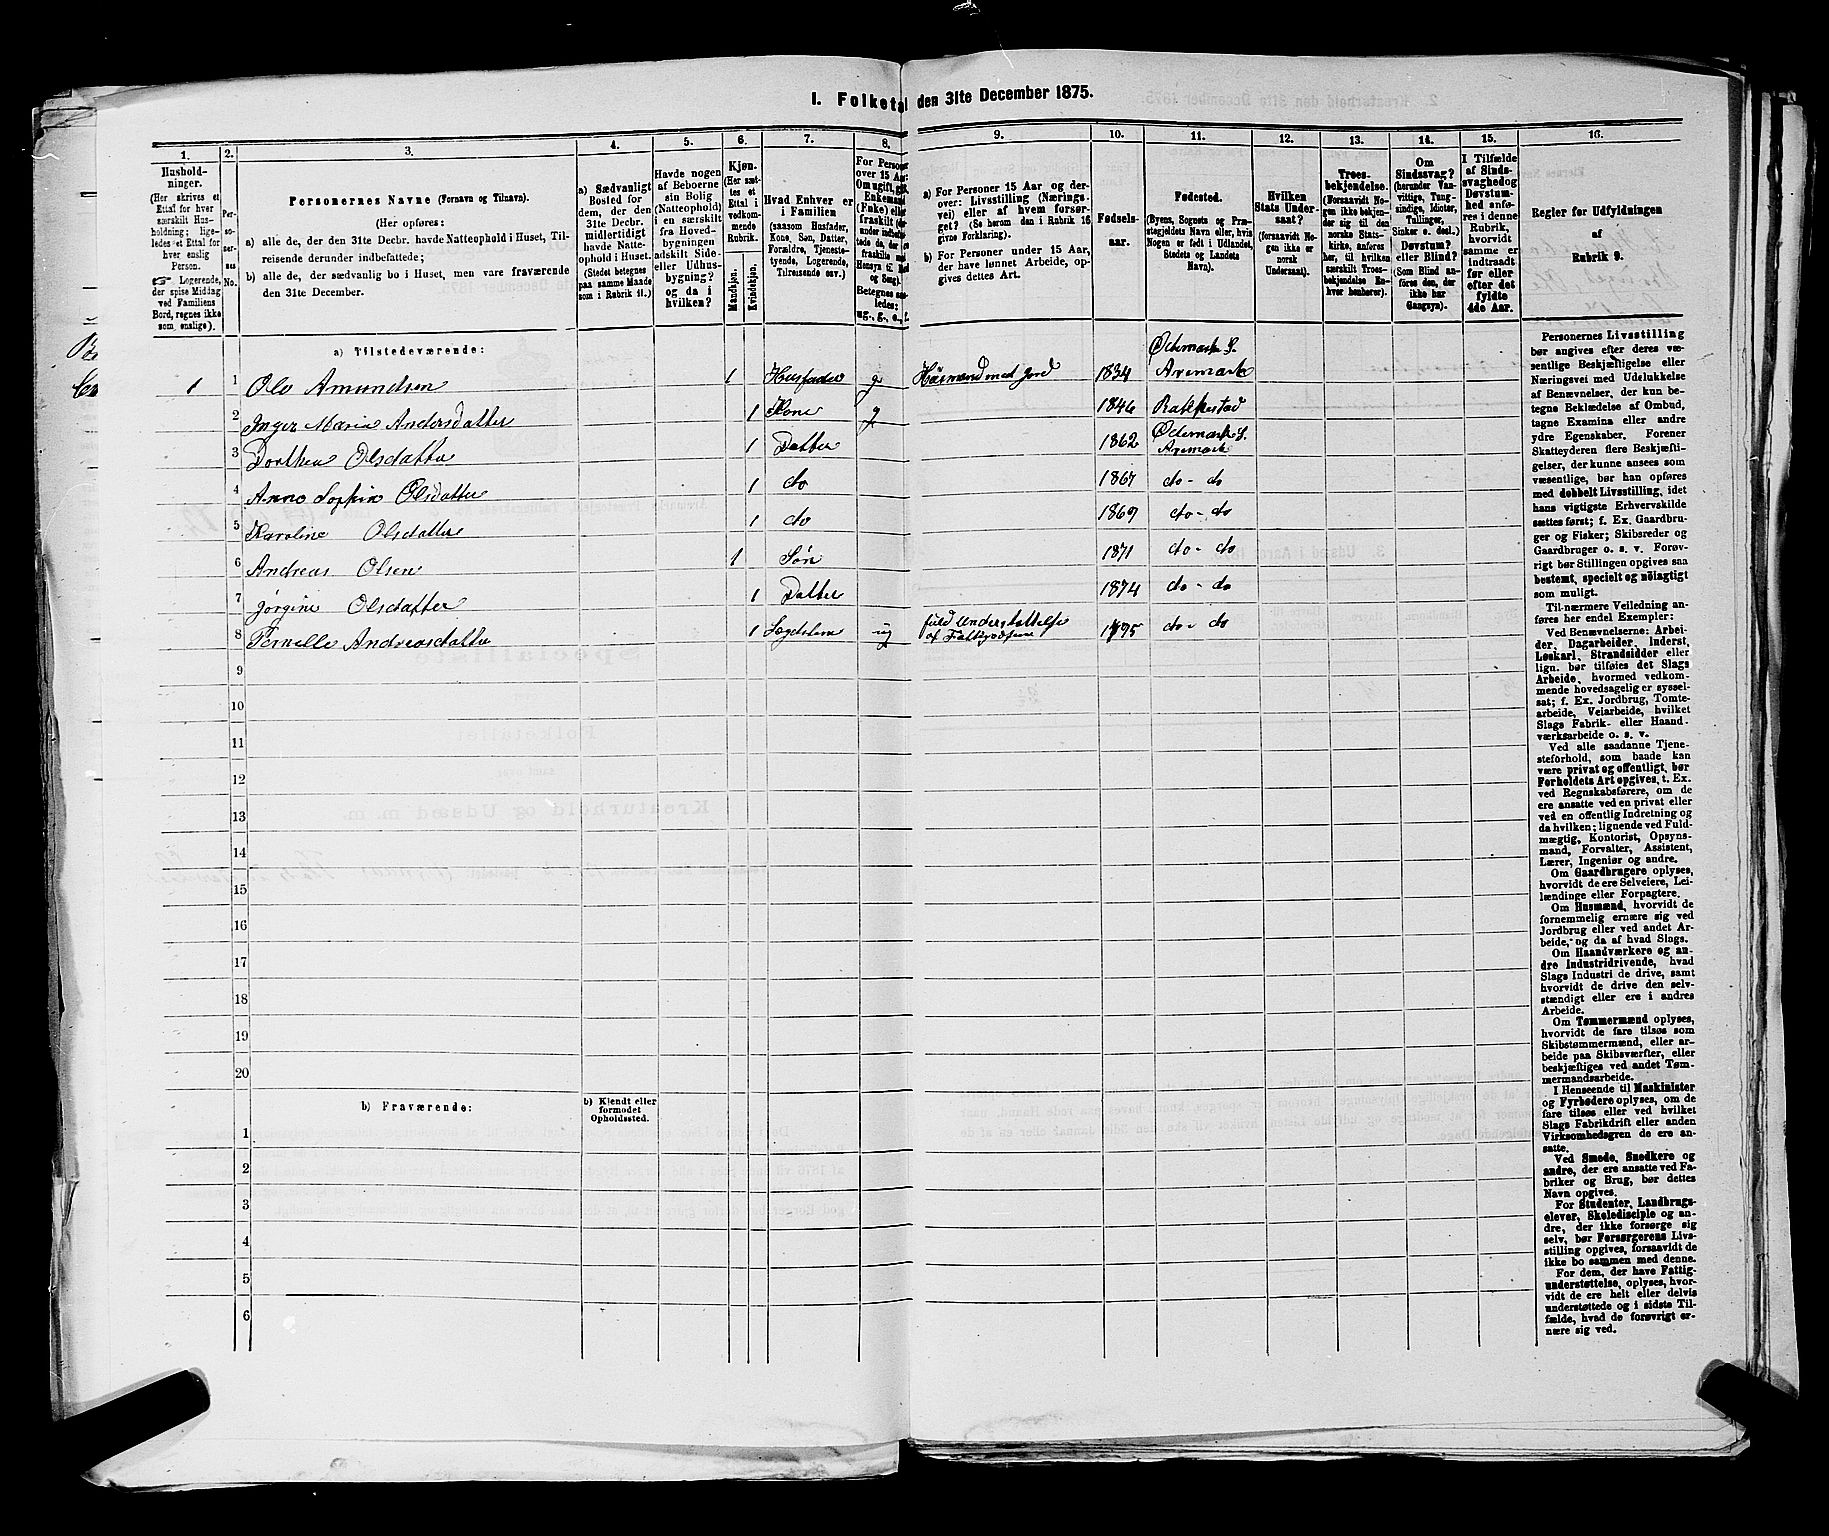 I. Folketal den 31te December 1875.
1. 2. 3. 4. 5. 6. 7. 8. 9. 10. 11. 12. 13. 14. 15. 16.
Husholdninger.
(Her skrives et
Ettal for hver
særskilt Husholdning;
ligeledes et Ettal for
hver enslig
Person.
☞ Logerende,
der spise Middag
ved Familiens
Bord, regnes ikke
som enslige).
Personernes No.
Personernes Navne (Fornavn og Tilnavn).
(Her opføres:
a) alle de, der den 31te Decbr. havde Natteophold i Huset, Tilreisende derunder indbefattede;
b) alle de, der sædvanlig bo i Huset, men vare fraværende
den 31te December.
a) Sædvanligt
Bosted for
dem, der den
31te Decbr.
midlertidigt
havde Natteophold i Huset.
(Stedet betegnes
paa samme Maade
som i Rubrik 11.)
Havde nogen
af Beboerne
sin Bolig
(Natteophold)
i en særskilt
fra Hovedbygningen
adskilt Side-
eller Udhusbygning?
og da i
hvilken?
Kjøn.
(Her sættes et
Ettal i
vedkommende
Rubrik.
Mandkjøn.
Kvindekjøn.
Hvad Enhver er
i Familien
(saasom Husfader,
Kone, Søn, Datter,
Forældre, Tjenestetyende, Logerende,
Tilreisende osv.)
For Personer
over 15 Aar
Betegnes saaledes:
ug., g., e., f.
a) For Personer 15 Aar og derover: Livsstilling (Næringsvei) eller af hvem forsørget? (Se herom den i Rubrik 16
givne Forklaring).
b) For Personer under 15 Aar,
der have lønnet Arbeide, opgives dettes Art.
Fødselsaar.
Fødested.
(Byens, Sognets og Præstegjeldets Navn eller, hvis
Nogen er født i Udlandet,
Stedets og Landets
Navn).
Hvilken
Stats Undersaat?
(forsaavidt Nogen ikke er
norsk
Undersaat).
Troesbekjendelse.
(Forsaavidt Nogen ikke bekjender sig til den
norske Statskirke, anføres
her, til hvilken
særskilt Troesbekjendelse Enhver henhører).
Om
Sindssvag?
(herunder Vanvittige, Tungsindige, Idioter,
Tullinger,
Sinker o. desl.)
Døvstum?
eller Blind?
(Som Blind anføres den, der
ikke har
Gangsyn).
I Tilfælde
af Sindssvaghed og
Døvstumhed anføres i denne
Rubrik,
hvorvidt
samme er
indtraadt
før eller
efter det
fyldte
4de Aar.
Regler for Udfyldningen
af
Rubrik 9.
a) Tilstedeværende:
1 1 Ole Amundsen 1 Husfader g Husmand med Jord 1834 Ødemark S. Aremark
2 Inger Maria Andersdatter 1 Kone g 1846 Rakkestad
3 Dorthea Olsdatter 1 Datter 1862 Ødemark S. Aremark
4 Anne Sophie Olsdatter 1 do 1867 do - do
5 Karoline Olsdatter 1 do 1869 do - do
6 Andreas Olsen 1 Søn 1871 do - do
7 Jørgine Olsdatter 1 Datter 1874 do - do
8 Pernelle Andreasdatter 1 Lægdslem ug fuld Understøttelse af Fattigvæsen 1795 do - do
9
10
11
12
13
14
15
16
17
18
19
20
b) Fraværende:
b) Kjendt eller
formodet
Opholdssted.
1
2
3
4
5
6
Personernes Livsstilling
bør angives efter deres væsentlige Beskjæftigelse eller
Næringsvei med Udelukkelse
af Benævnelser, der kun betegne Beklædelse af Ombud,
tagne Examina eller andre
ydre Egenskaber. Forener
Skatteyderen flere Beskjæftigelser, der kunne ansees som
væsentlige, bør han opføres
med dobbelt Livsstilling, idet
hans vigtigste Erhvervskilde
sættes først; f. Ex. Gaardbruger og Fisker; Skibsreder og
Gaardbruger o. s. v. Forøvrigt bør Stillingen opgives saa
bestemt, specielt og nøiagtigt
som muligt.
Til nærmere Veiledning anføres her endel Exempler:
Ved Benævnelserne: Arbeider, Dagarbeider, Inderst,
Løskarl, Strandsidder eller
lign. bør tilføies det Slags
Arbeide, hvormed vedkommende hovedsagelig er sysselsat; f. Ex. Jordbrug, Tomtearbeide, Veiarbeide, hvilket
Slags Fabrik- eller Haandværksarbeide o. s. v.
Ved alle saadanne Tjenesteforhold, som baade kan
være privat og offentligt, bør
Forholdets Art opgives, t. Ex.
ved Regnskabsførere, om de
ere ansatte ved en privat eller
ved en offentlig Indretning og
da hvilken; lignende ved Fuldmægtig, Kontorist, Opsynsmand, Forvalter, Assistent,
Lærer, Ingeniør og andre.
Om Gaardbrugere oplyses,
hvorvidt de ere Selveiere, Leilændinge eller Forpagtere.
Om Husmænd, hvorvidt de
fornemmelig ernære sig ved
Jordbrug eller ved andet Arbeide, og da af hvad Slags.
Om Haandværkere og andre Industridrivende, hvad
Slags Industri de drive, samt
hvorvidt de drive den selvstændigt eller ere i andres
Arbeide.
Om Tømmermænd oplyses,
hvorvidt de fare tilsøs som
Skibstømmermænd, eller arbeide paa Skibsværfter, eller
beskjæftiges ved andet Tømmermandsarbeide.
I Henseende til Maskinister
og Fyrbødere oplyses, om de
fare tilsøs eller ved hvilket
Slags Fabrikdrift eller anden
Virksomhedsgren de ere ansatte.
Ved Smede, Snedkere og
andre, der ere ansatte ved Fabriker og Brug, bør dettes
Navn opgives.
For Studenter, Landbrugselever, Skoledisciple og andre, der ikke forsørge sig
selv, bør Forsørgerens Livsstilling opgives, forsaavidt de
ikke bo sammen med denne.
For dem, der have Fattigunderstøttelse, oplyses, hvorvidt de ere helt eller delvis
understøttede og i sidste Tilfælde, hvad de forøvrigt ernære sig ved.